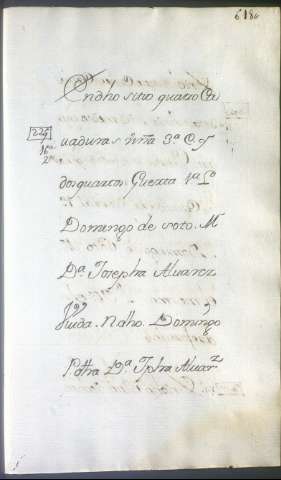 618
En dho sitio quatro Ca
vaduras viña 3ª C. y
dos quartos. Guerta 1ª L.
Domingo de soto. M.
Dª Josepha Alvarez
Viuda. N dho. Domingo
P otra Dª Jpha Alvarz